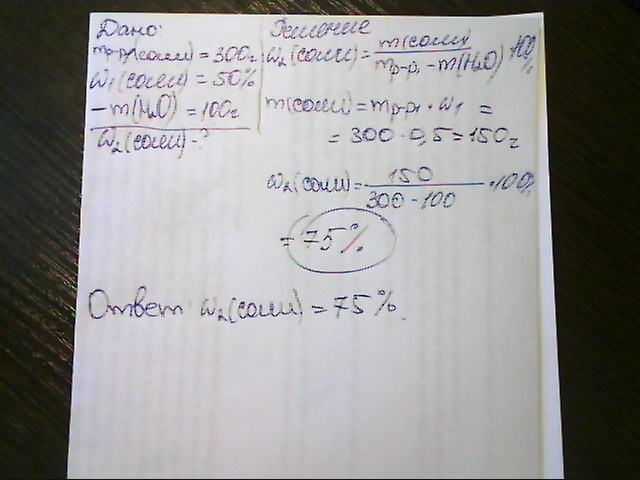 Дано:
mр-р(соли) = 300г
ω1(соли) = 50%
– m(H2O) = 100г
ω2(соли) - ?
Решение
ω2(соли) = m(соли) / mр-р, – m(H2O) · 100%
m(соли) = mр-р1 · ω1 =
= 300 · 0,5 = 150г
ω2(соли) = 150 / 300 - 100 · 100%
= 75%
Ответ: ω2(соли) = 75%.